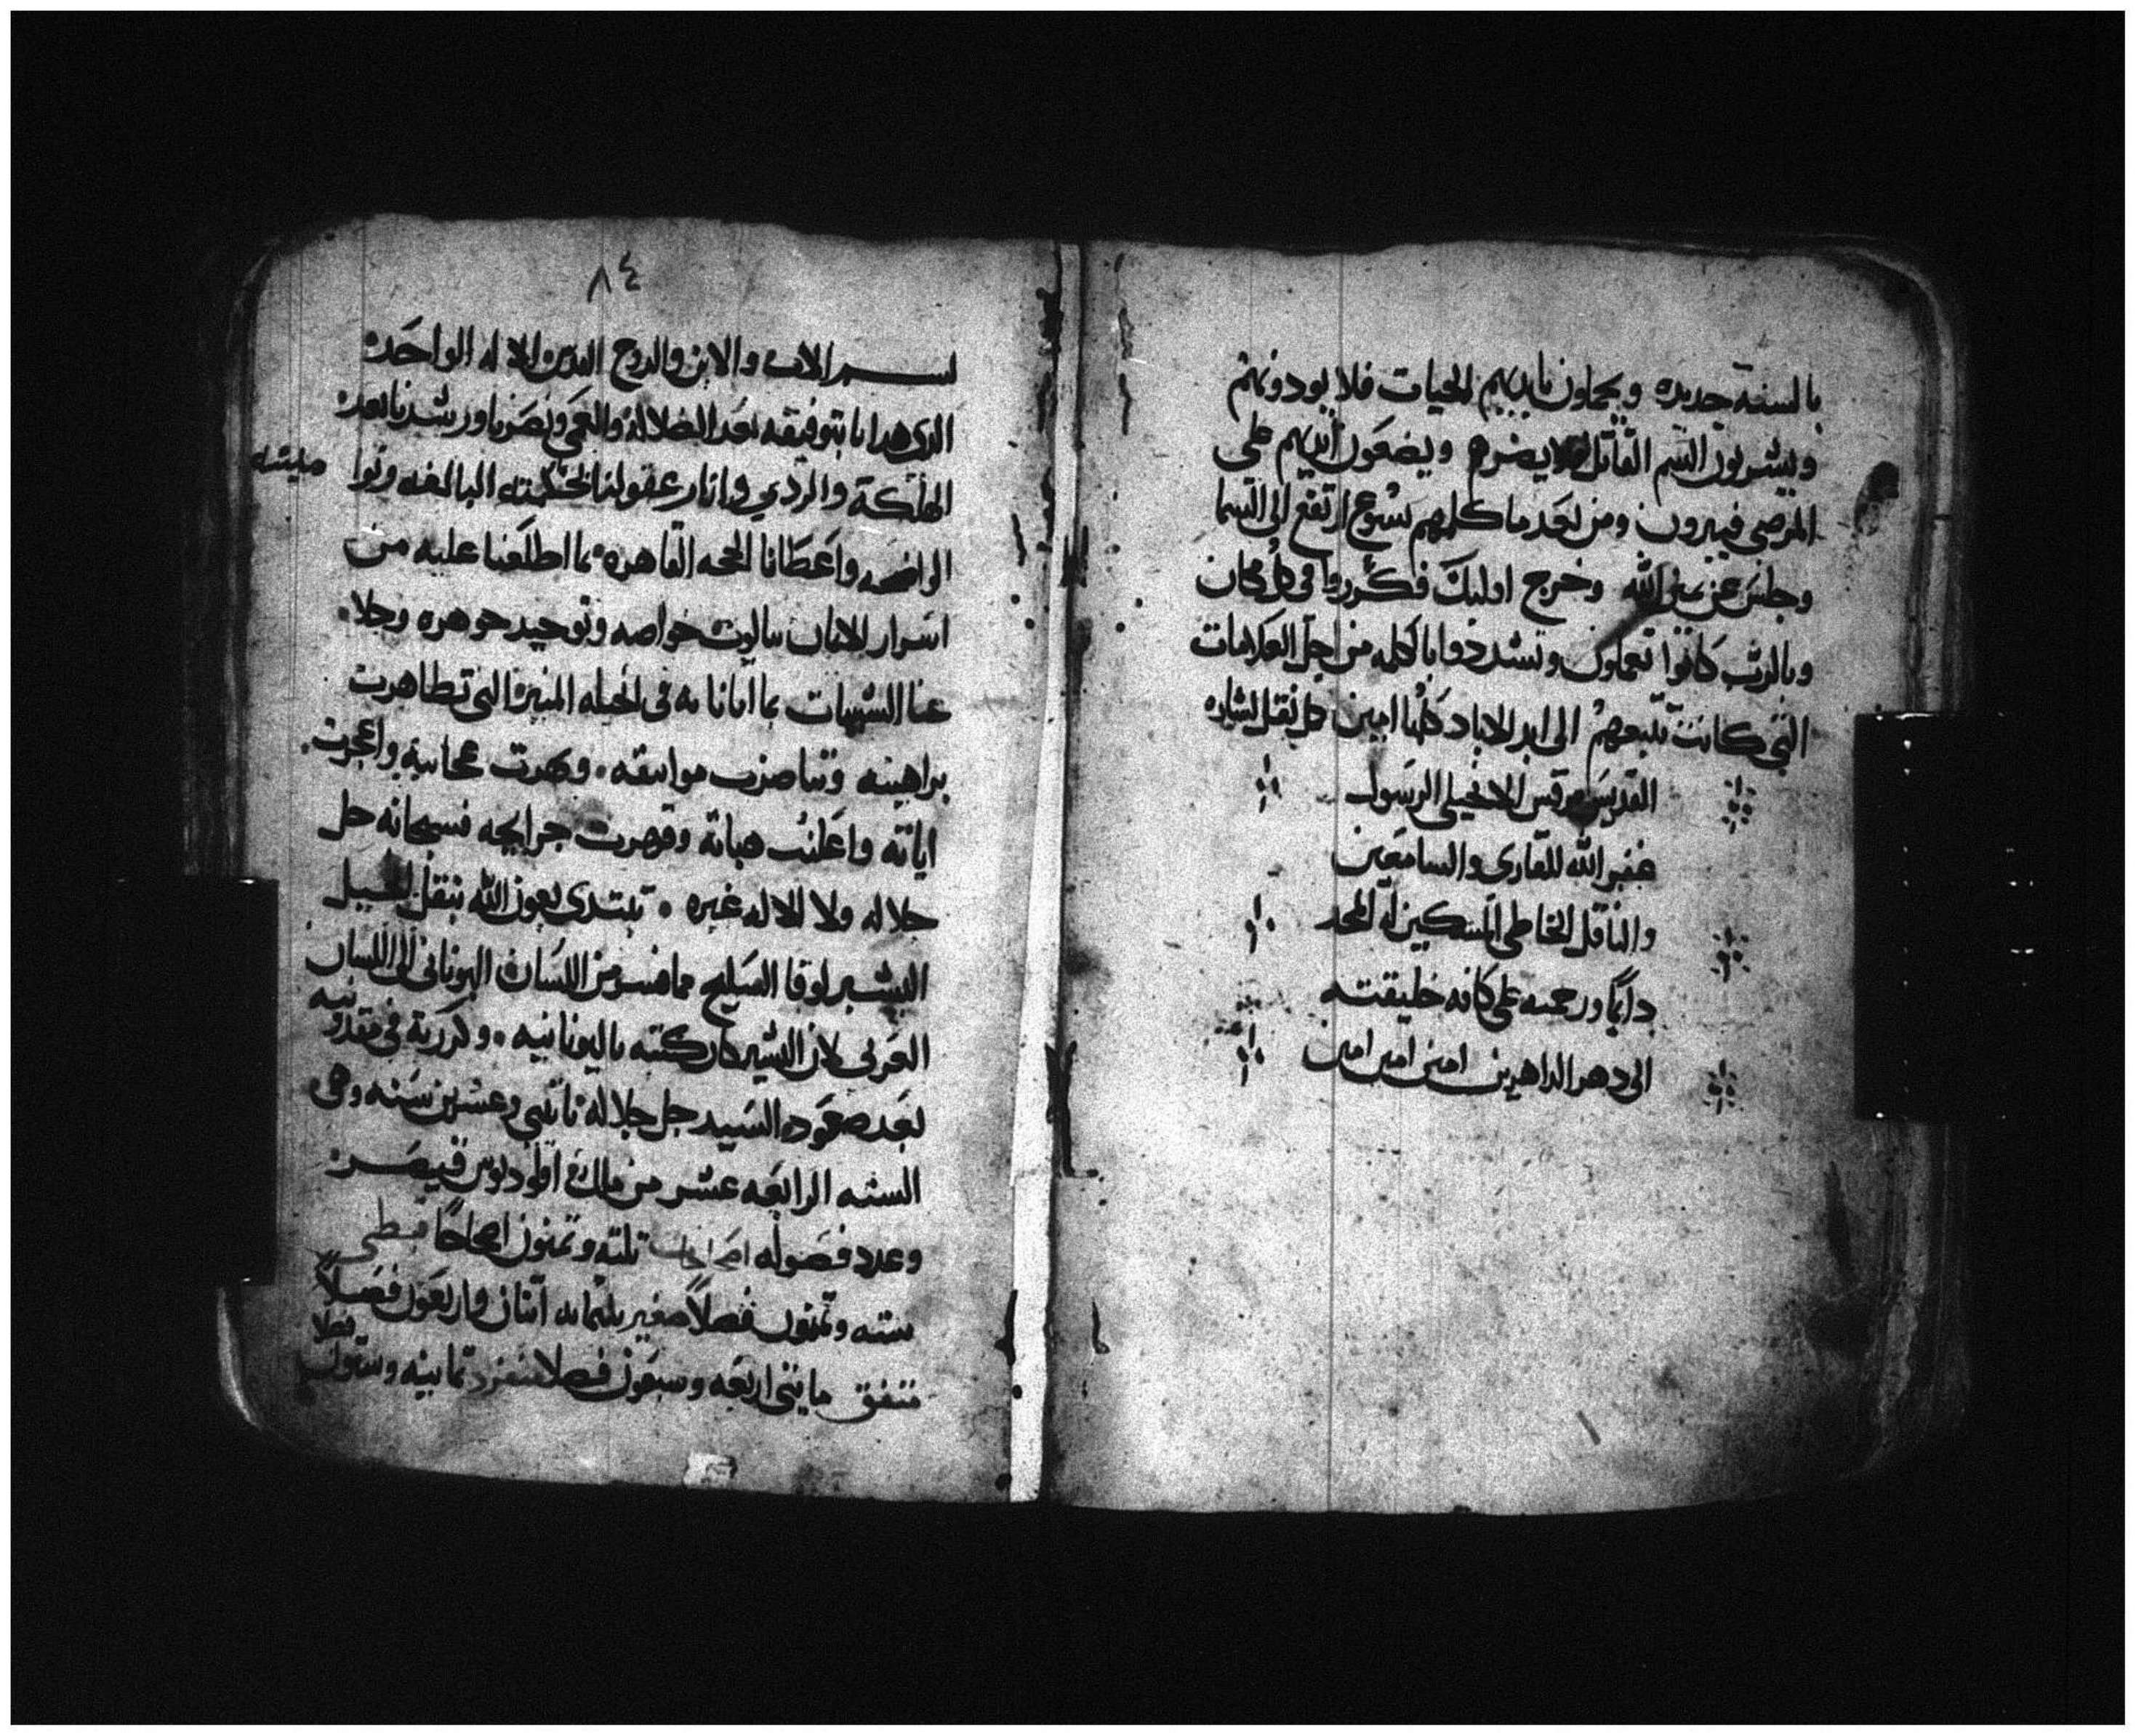 بالسنة جديده ويحملون بايديهم الحيات فلا يودونهم
ويشربون السم القاتل فلا يضرهم ويضعون ايديهم على
المرضى فيبرون ومن بعد ما كلمهم يسوع ارتفع الى السما
وجلس عن يمين الله وخرج اوليك فكرزوا في كل مكان
وبالرب كانوا يعملون وتشددوا بالكلمه من اجل العلامات
التي كانت تتبعهم الى ابد الاباد كلها امين كمل نقل بشاره
القديس مرقس الانجيلي الرسول
غفر الله للقارى والسامعين
والناقل الخاطي المسكين له المجد
دايما ورحمته على كافه خليقته
الى دهر الداهرين امين امين امين
٨٤
بسم الاب والابن والروح القدس الاله الواحد
الذي هدانا بتوفيقه بعد الضلاله والعمى وبصرنا ورشدنا بعد
الهلكة والردي وانار عقولنا بحكمته البالغه
الواضحه واعطانا الحجه القاهره بما اطلعنا عليه من
اسرار الاهيات ثالوث خواصه وتوحيد جوهره وجلا
عنا الشبهات بما اتانا به في انجيله المنير التي تظاهرت
براهينه وتناصرت مواثقه وبهرت عجايبه واعجزت
اياته واعلنت هباته وقهرت جرايحه فسبحانه جل
جلاله ولا اله غيره نبتدى بعون الله بنقل انجيل
البشير لوقا السليح مما فسر من اللسان اليوناني الى اللسان
العربي لان البشير كان كتبه باليونانيه وكرز به في مقدونيه
بعد صعود السيد جل جلاله باثني وعشرين سنه وهي
السنه الرابعه عشر من ملك اقلوديوس قيصر
وعدد فصوله اصحاحات ثلثه وثمنون اصحاحا قبطي
سته وثمنون فصلا صغير ثلثمايه اثنان واربعون فصلا
متفق مايتى اربعه وسبعون فصلا منفرد ثمانيه وستون فصلا